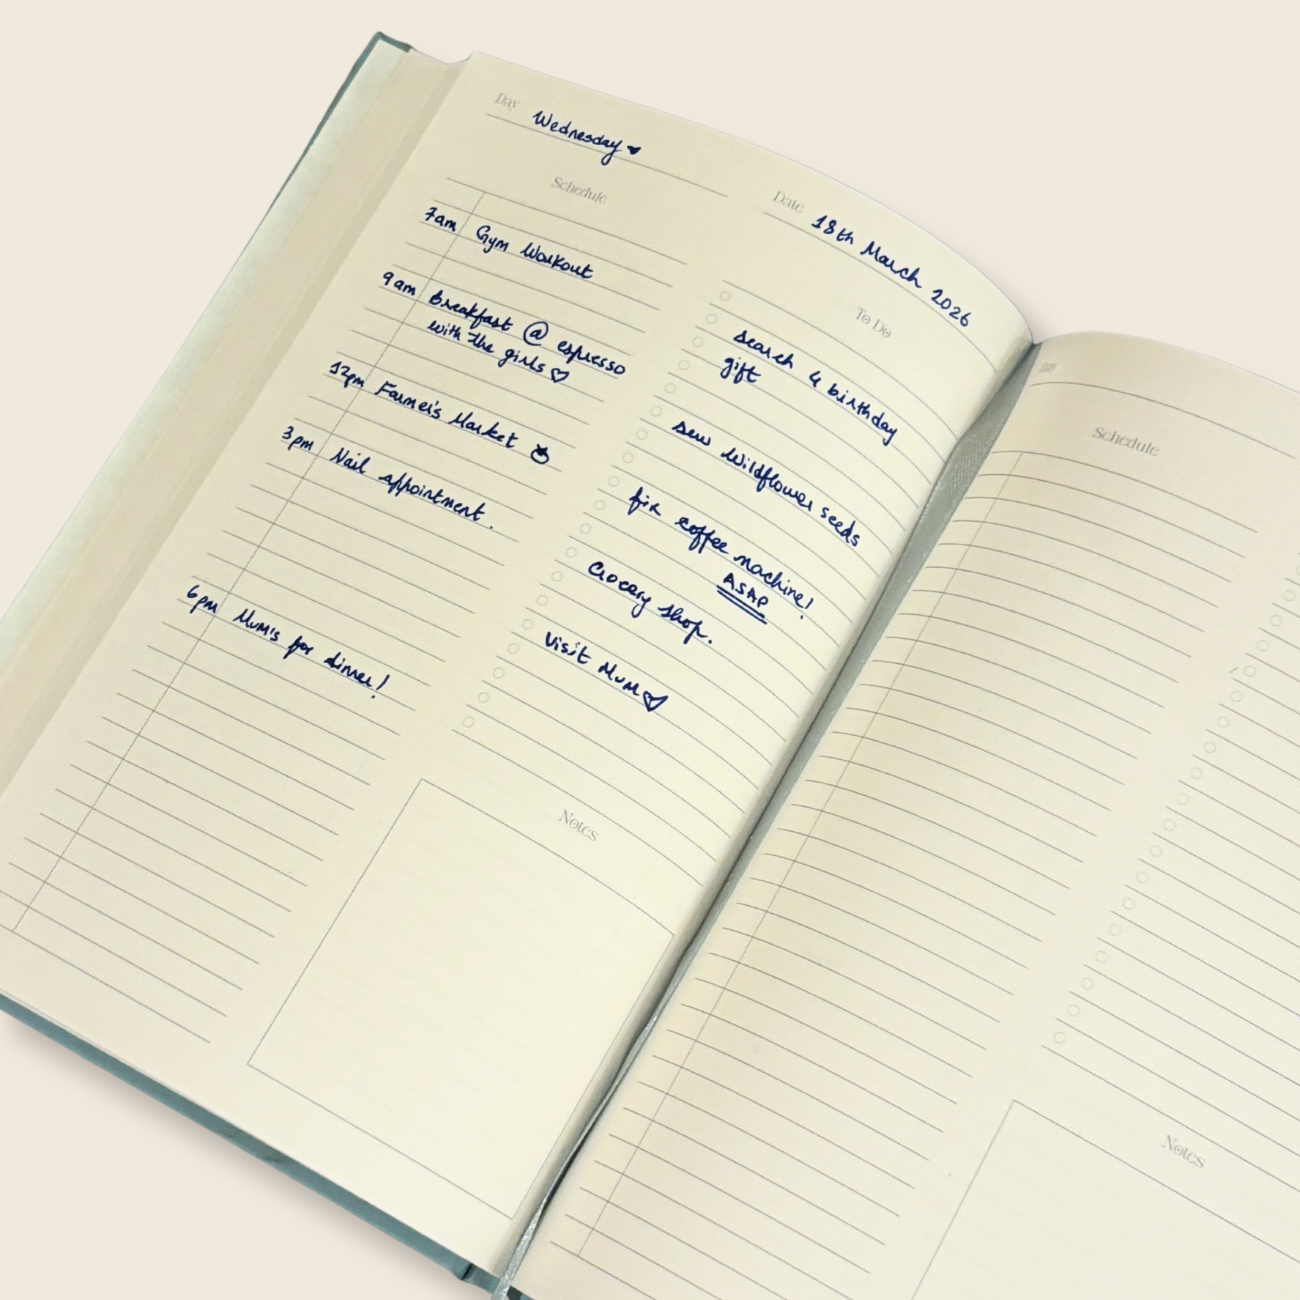 Day Wednesday
Date 18th March 2026
Schedule
7am Gym Workout
9am breakfast @ espresso
with the girls
12pm Farmer's Market
3pm Nail appointment.
6pm Mum's for dinner!
To Do
search 4 birthday
gift
sew wildflower seeds
fix coffee machine!
ASAP
Grocery shop.
Visit Mum
Notes
Day
Schedule
Notes